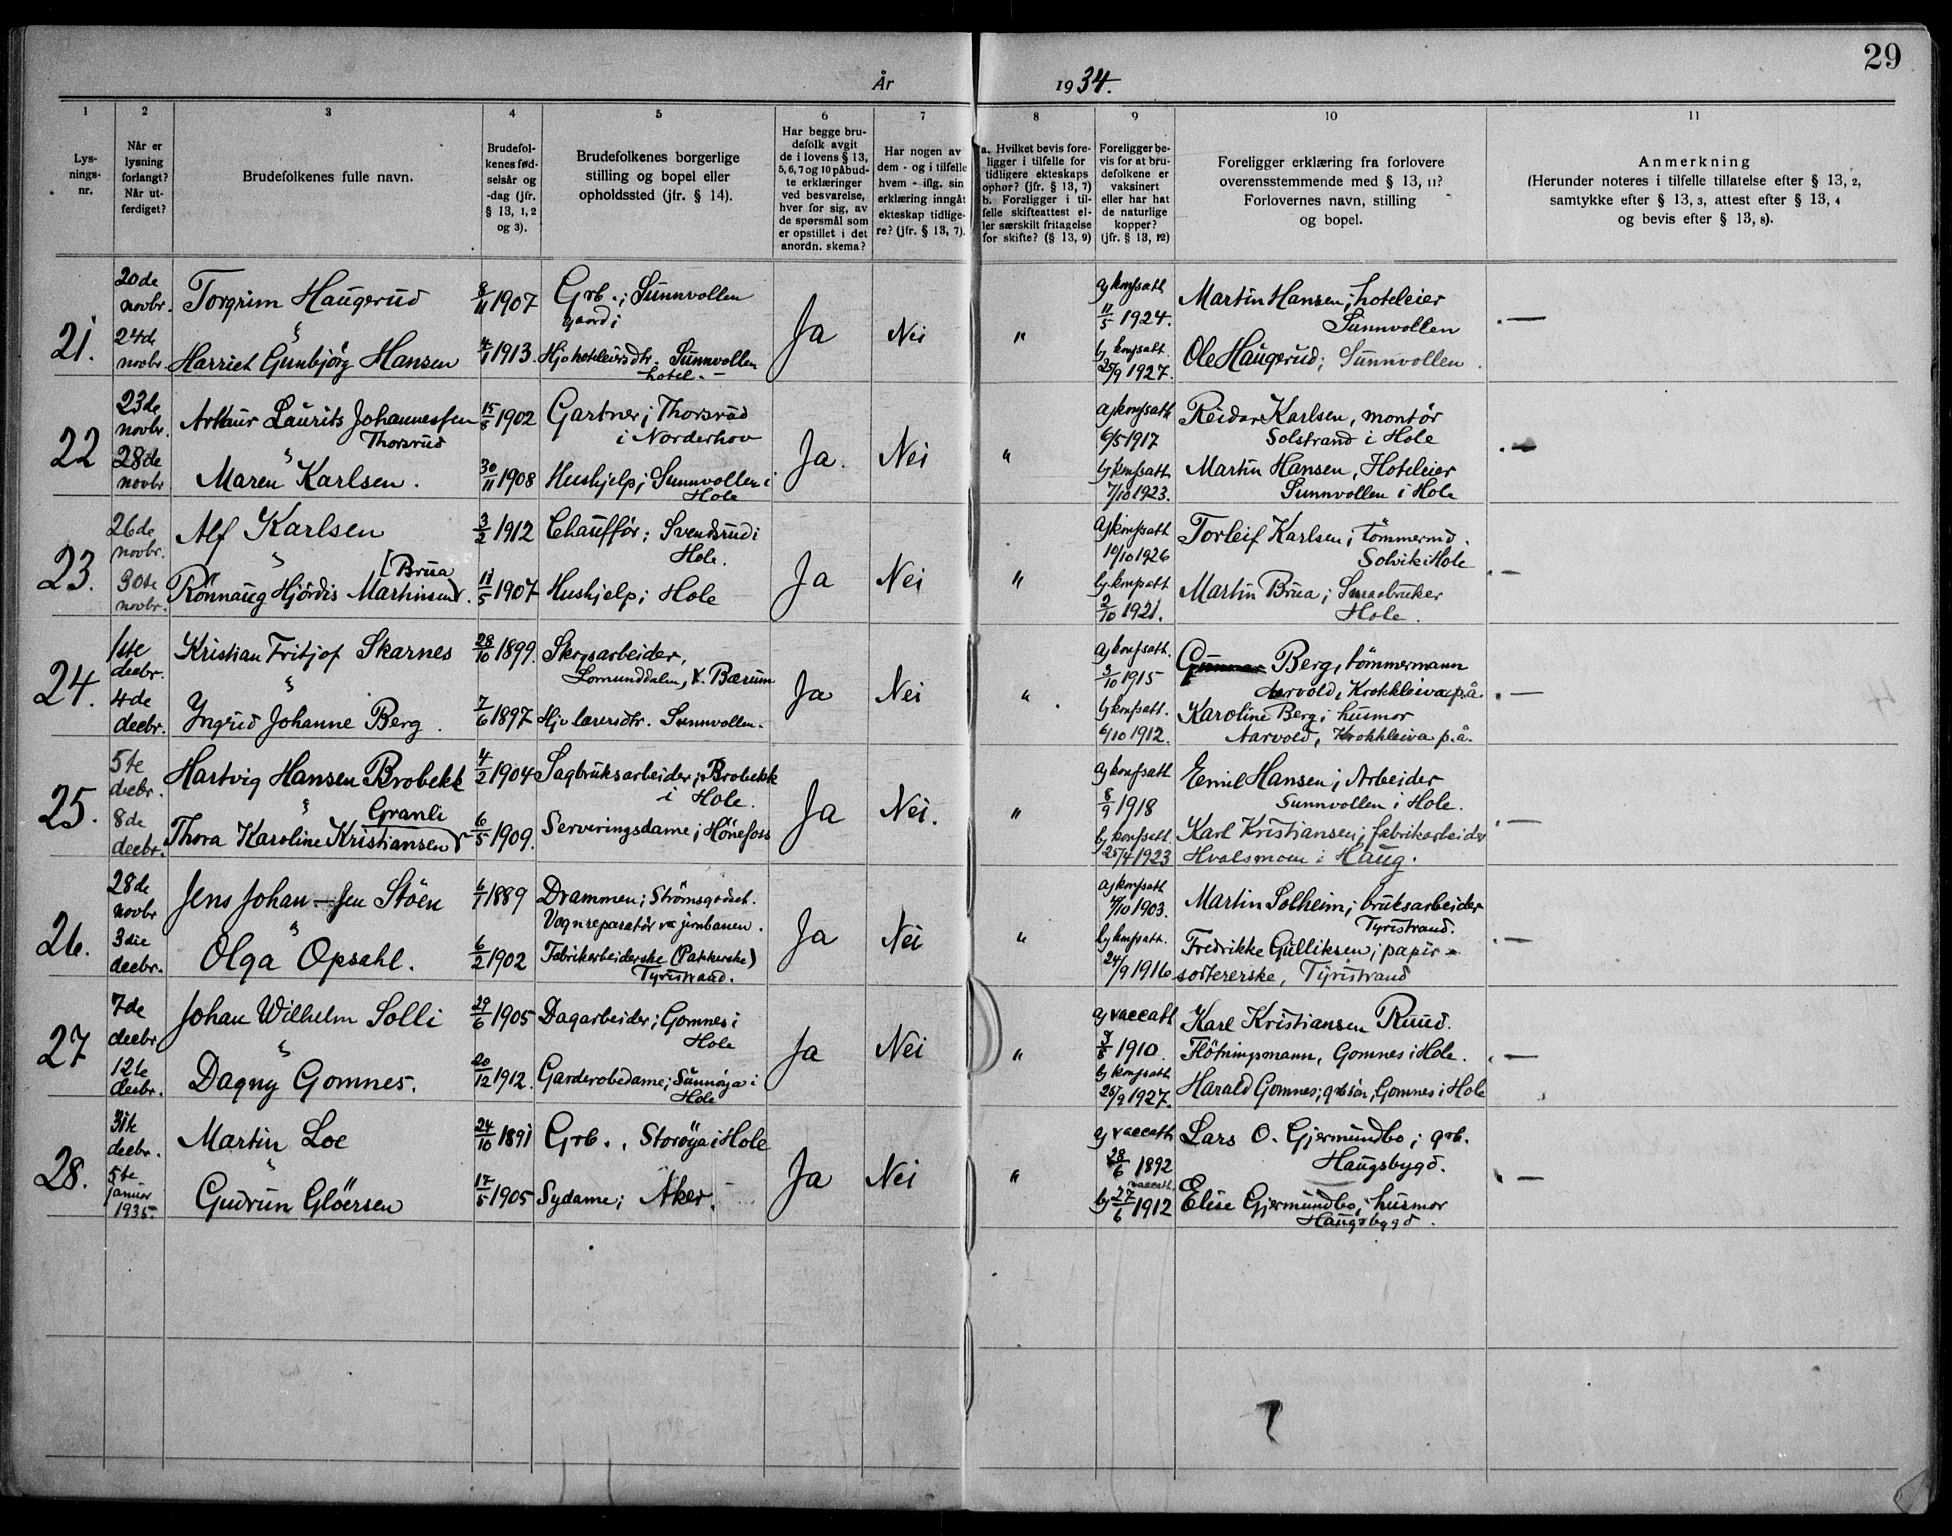 29
År 1934.
1 2 3 4 5 6 7 8 9 10 11
Lys-
nings-
nr.
Når er
lysning
forlangt?
Når ut-
ferdiget?
Brudefolkenes fulle navn.
Brudefol-
kenes fød-
selsår og
-dag (jfr.
§ 13, 1, 2
og 3).
Brudefolkenes borgerlige
stilling og bopel eller
opholdssted (jfr. § 14).
Har begge bru-
defolk avgit
de i lovens § 13,
5, 6, 7 og 10 påbud-
te erklæringer
ved besvarelse,
hver for sig, av
de spørsmål som
er opstillet i det
anordn. skema?
Har nogen av
dem - og i tilfelle
hvem - iflg. sin
erklæring inngått
ekteskap tidlige-
re? (jfr. § 13, 7).
a. Hvilket bevis fore-
ligger i tilfelle for
tidligere ekteskaps
ophør? (jfr. § 13, 7)
b. Foreligger i til-
felle skifteattest el-
ler særskilt fritagelse
for skifte? (§ 13, 9)
Foreligger be-
vis for at bru-
defolkene er
vaksinert
eller har hat
de naturlige
kopper?
(jfr. § 13, 12)
Foreligger erklæring fra forlovere
overensstemmende med § 13, 11?
Forlovernes navn, stilling
og bopel.
Anmerkning
(Herunder noteres i tilfelle tillatelse efter § 13, 2,
samtykke efter § 13, 3, attest efter § 13, 4
og bevis efter § 13, 8).
21.
20de
novbr.
24de
novbr.
Torgrim Haugerud
"
Harriet Gunbjörg Hansen
8/11 1907
4/1 1913.
Grb.; Sunnvollen
gaard;
Hjv hoteleiersdtr. Sunnvollen
hotel.-
Ja
Nei
"
a) konfsatt
11/5 1924.
b) konfsatt.
25/9 1927.
Martin Hansen; hoteleier
Sunnvollen
Ole Haugerud; Sunnvollen
. —
22
23de
novbr.
28de
novbr
Arthur Laurits Johannessen
Thorsrud
"
Maren Karlsen.
15/5 1902
30/11 1908
Gartner; Thorsrud
i Norderhov
Hushjelp; Sunnvollen i
Hole
Ja.
Nei
"
a) konfsatt
6/5 1917
b) konfsatt
7/10 1923.
Reidar Karlsen, montör
Solstrand i Hole
Martin Hansen, Hoteleier
Sunnvollen i Hole
. —
23.
26de
novbr.
30te
novbr.
Alf Karlsen
"
[Brua
Rönnaug Hjördis Martinsen
3/2 1912
11/5 1907
Chauffør; Svendsrud i
Hole.
Hushjelp; Hole
Ja
Nei
"
a) konfsatt
10/10 1926
b) konfsatt
2/10 1921.
Torleif Karlsen; tömmermd.
Solvik i Hole
Martin Brua; Smaabruker
Hole.
. —
24.
1ste
decbr.
4de
decbr.
Kristian Fritjof Skarnes
"
Yngrid Johanne Berg.
28/10 1899.
7/6 1897
Skogsarbeider,
Lomunddalen, V. Bærum
Hjv lærersdtr. Sunnvollen.
Ja
Nei
"
a) konfsatt.
3/10 1915
b) konfsatt.
6/10 1912.
Gunnar Berg, tömmermann
Aarvold, Krokkleiva p.å.
Karoline Berg; husmor
Aarvold, Krokkleiva p.å.
. —
25.
5te
decbr.
8de
decbr.
Hartvig Hansen Brobekk
"
Granli
Thora Karoline Kristiansen
4/2 1904
6/5 1909.
Sagbruksarbeider; Brobekk
i Hole.
Serveringsdame; Hönefoss
Ja
Nei.
"
a) konfsatt
8/9 1918
b) konfsatt.
25/4 1923
Emil Hansen; Arbeider
Sunnvollen i Hole.
Karl Kristiansen; fabrikarbeider
Hvalsmoen i Haug.
. —
26.
28de
novbr
3die
decbr.
Jens Johan—sen Stöen
"
Olga Opsahl.
6/1 1889
6/2 1902
Drammen; Strömsgodset.
Vognreparatör ve jernbanen.
Fabrikarbeiderske (Pakkerske)
Tyristrand.
Ja
Nei
"
a) konfsatt
4/10 1903.
b) konfsatt.
24/9 1916
Martin Solheim; bruksarbeider
Tyristrand.
Fredrikke Gulliksen; papir-
sortererske, Tyristrand
. —
27
7de
decbr.
12te
decbr.
Johan Wilhelm Solli
"
Dagny Gomnes.
29/6 1905
20/12 1912.
Dagarbeider; Gomnes i
Hole
Garderobedame; Sunnöya i
Hole
Ja
Nei
"
a) vaccatt
3/8 1910.
b) konfsatt
25/9 1927.
Karl Kristiansen Ruud.
Flötningsmann, Gomnes i Hole.
Harald Gomnes; grbsön, Gomnes i Hole
. —
28.
31te
decbr.
5te
januar
1935.
Martin Loe
"
Gudrun Glöersen
24/10 1891
17/5 1905
Grb., Storöya i Hole
Sydame; Aker.
Ja
Nei
"
a) vaccatt
28/6 1892
vaccatt.
b) 27/6 1912
Lars O. Gjermundbo; grb.
Haugsbygd.
Elise Gjermundbo; husmor
Haugsbygd.
. —